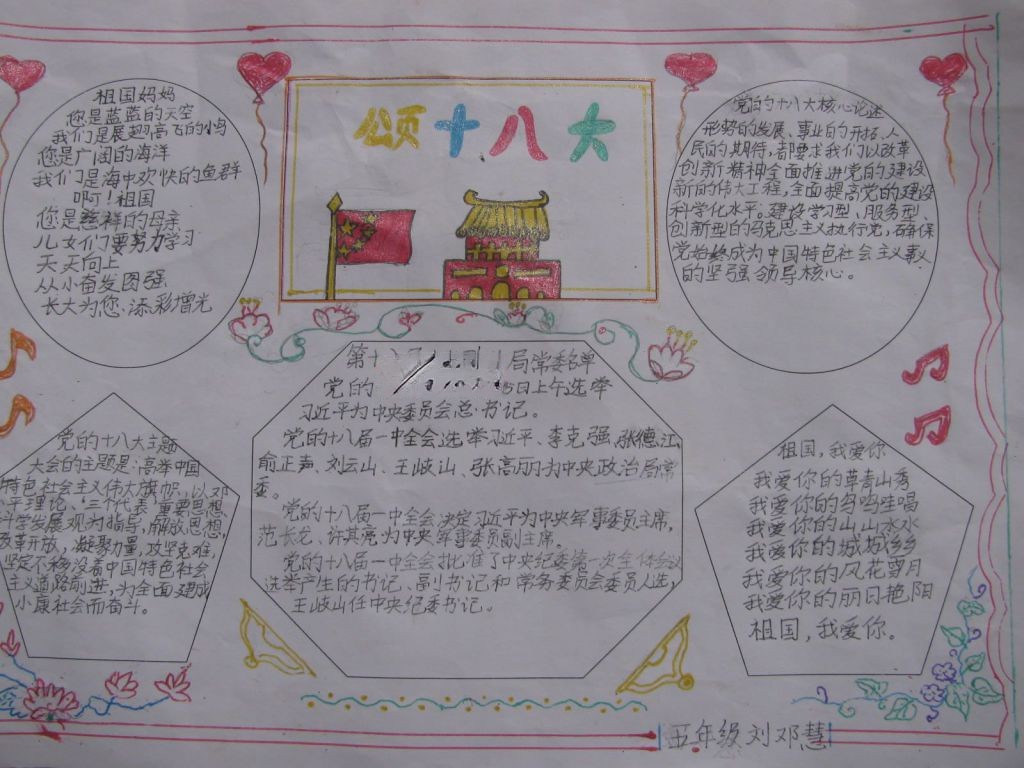 颂十八大
祖国妈妈
您是蓝蓝的天空
我们是展翅高飞的小鸟
您是广阔的海洋
我们是海中欢快的鱼群
啊！祖国
您是慈祥的母亲
儿女们要努力学习
天天向上
从小奋发图强
长大为您添彩增光
党的十八大核心论述
形势的发展、事业的开拓、人
民的期待，都要求我们以改革
创新精神全面推进党的建设
新的伟大工程，全面提高党的建设
科学化水平。建设学习型、服务型、
创新型的马克思主义执行党，确保
党始终成为中国特色社会主义事业
的坚强领导核心。
第十 局常委名单
党的 日上午选举
习近平为中央委员会总书记。
党的十八届一中全会选举习近平、李克强、张德江、
俞正声、刘云山、王岐山、张高丽为中央政治局常
委。
党的十八届一中全会决定习近平为中央军事委员主席，
范长龙、许其亮为中央军事委员副主席。
党的十八届一中全会批准了中央纪委第一次全体会议
选举产生的书记、副书记和常务委员会委员人选，
王岐山任中央纪委书记。
党的十八大主题
大会的主题是：高举中国
特色社会主义伟大旗帜，以邓
小平理论、“三个代表”重要思想、
科学发展观为指导，解放思想，
改革开放，凝聚力量，攻坚克难，
坚定不移沿着中国特色社会
主义道路前进，为全面建成
小康社会而奋斗。
祖国，我爱你
我爱你的草青山秀
我爱你的鸟鸣蛙唱
我爱你的山山水水
我爱你的城城乡乡
我爱你的风花雪月
我爱你的丽日艳阳
祖国，我爱你。
五年级刘邓慧